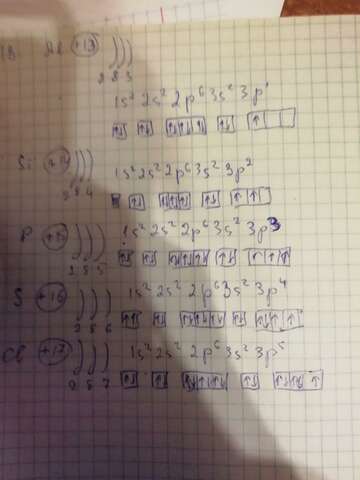 Al +13 )))
2 8 3
1s² 2s² 2p⁶ 3s² 3p¹
↑↓ ↑↓ ↑↓ ↑↓ ↑↓ ↑↓ ↑
Si +14 )))
2 8 4
1s² 2s² 2p⁶ 3s² 3p²
↑↓ ↑↓ ↑↓ ↑↓ ↑↓ ↑ ↑
P )))
2 8 5
1s² 2s² 2p⁶ 3s² 3p³
↑↓ ↑↓ ↑↓ ↑↓ ↑↓ ↑↓ ↑ ↑ ↑
S +16 )))
2 8 6
1s² 2s² 2p⁶ 3s² 3p⁴
↑↓ ↑↓ ↑↓ ↑↓ ↑↓ ↑↓ ↑↓ ↑ ↑
Cl +17 )))
8 7
1s² 2s² 2p⁶ 3s² 3p⁵
↑↓ ↑↓ ↑↓ ↑↓ ↑↓ ↑↓ ↑↓ ↑↓ ↑